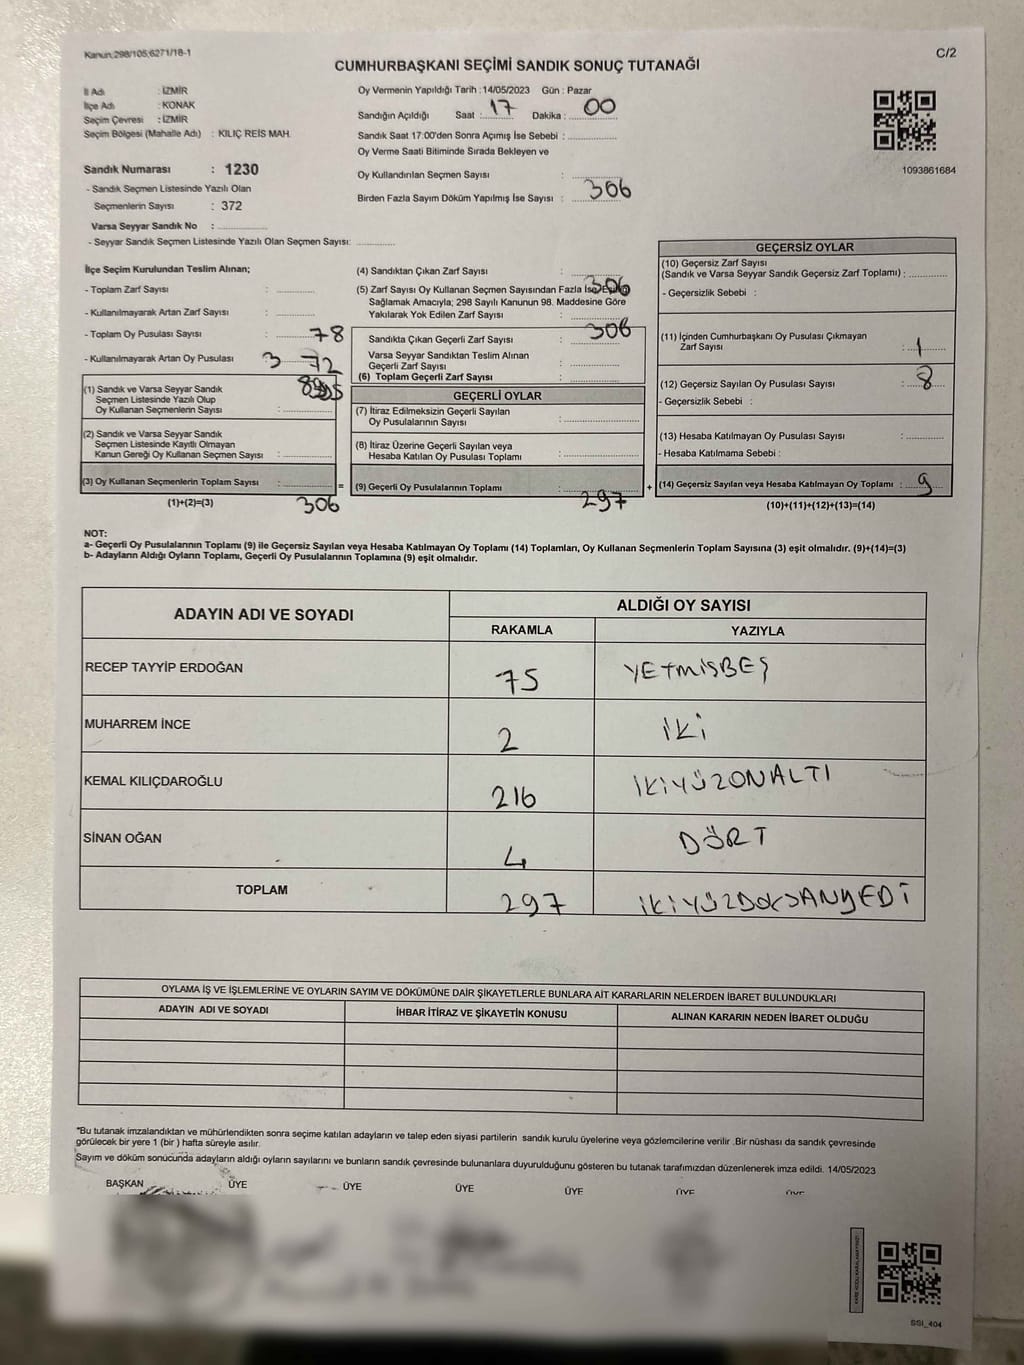 Kanun:298/105;6271/18-1
C/2
CUMHURBAŞKANI SEÇİMİ SANDIK SONUÇ TUTANAĞI
İl Adı : İZMİR
İlçe Adı : KONAK
Seçim Çevresi : İZMİR
Seçim Bölgesi (Mahalle Adı) : KILIÇ REİS MAH.
Sandık Numarası : 1230
- Sandık Seçmen Listesinde Yazılı Olan
Seçmenlerin Sayısı : 372
Varsa Seyyar Sandık No :
- Seyyar Sandık Seçmen Listesinde Yazılı Olan Seçmen Sayısı:
Oy Vermenin Yapıldığı Tarih :14/05/2023 Gün : Pazar
Sandığın Açıldığı Saat : 17 Dakika : 00
Sandık Saat 17:00'den Sonra Açımış İse Sebebi :
Oy Verme Saati Bitiminde Sırada Bekleyen ve
Oy Kullandırılan Seçmen Sayısı :
306
Birden Fazla Sayım Döküm Yapılmış İse Sayısı :
1093861684
İlçe Seçim Kurulundan Teslim Alınan;
- Toplam Zarf Sayısı :
- Kullanılmayarak Artan Zarf Sayısı :
- Toplam Oy Pusulası Sayısı : 78
- Kullanılmayarak Artan Oy Pusulası 3 72
(1) Sandık ve Varsa Seyyar Sandık
Seçmen Listesinde Yazılı Olup
Oy Kullanan Seçmenlerin Sayısı :
(2) Sandık ve Varsa Seyyar Sandık
Seçmen Listesinde Kayıtlı Olmayan
Kanun Gereği Oy Kullanan Seçmen Sayısı :
(3) Oy Kullanan Seçmenlerin Toplam Sayısı :
(1)+(2)=(3) 306
(4) Sandıktan Çıkan Zarf Sayısı :
306
(5) Zarf Sayısı Oy Kullanan Seçmen Sayısından Fazla İse Eşitliği
Sağlamak Amacıyla; 298 Sayılı Kanunun 98. Maddesine Göre
Yakılarak Yok Edilen Zarf Sayısı :
306
Sandıkta Çıkan Geçerli Zarf Sayısı :
Varsa Seyyar Sandıktan Teslim Alınan
Geçerli Zarf Sayısı :
(6) Toplam Geçerli Zarf Sayısı :
GEÇERLİ OYLAR
(7) İtiraz Edilmeksizin Geçerli Sayılan
Oy Pusulalarının Sayısı :
(8) İtiraz Üzerine Geçerli Sayılan veya
Hesaba Katılan Oy Pusulası Toplamı :
= (9) Geçerli Oy Pusulalarının Toplamı : +
297
GEÇERSİZ OYLAR
(10) Geçersiz Zarf Sayısı
(Sandık ve Varsa Seyyar Sandık Geçersiz Zarf Toplamı) :
- Geçersizlik Sebebi :
(11) İçinden Cumhurbaşkanı Oy Pusulası Çıkmayan
Zarf Sayısı : 1
(12) Geçersiz Sayılan Oy Pusulası Sayısı : 8
- Geçersizlik Sebebi :
(13) Hesaba Katılmayan Oy Pusulası Sayısı :
- Hesaba Katılmama Sebebi :
(14) Geçersiz Sayılan veya Hesaba Katılmayan Oy Toplamı : 9
(10)+(11)+(12)+(13)=(14)
NOT:
a- Geçerli Oy Pusulalarının Toplamı (9) ile Geçersiz Sayılan veya Hesaba Katılmayan Oy Toplamı (14) Toplamları, Oy Kullanan Seçmenlerin Toplam Sayısına (3) eşit olmalıdır. (9)+(14)=(3)
b- Adayların Aldığı Oyların Toplamı, Geçerli Oy Pusulalarının Toplamına (9) eşit olmalıdır.
ADAYIN ADI VE SOYADI ALDIĞI OY SAYISI
RAKAMLA YAZIYLA
RECEP TAYYİP ERDOĞAN 75 YETMİŞBEŞ
MUHARREM İNCE 2 İKİ
KEMAL KILIÇDAROĞLU 216 İKİYÜZONALTI
SİNAN OĞAN 4 DÖRT
TOPLAM 297 İKİYÜZDOKSANYEDİ
OYLAMA İŞ VE İŞLEMLERİNE VE OYLARIN SAYIM VE DÖKÜMÜNE DAİR ŞİKAYETLERLE BUNLARA AİT KARARLARIN NELERDEN İBARET BULUNDUKLARI
ADAYIN ADI VE SOYADI İHBAR İTİRAZ VE ŞİKAYETİN KONUSU ALINAN KARARIN NEDEN İBARET OLDUĞU
*Bu tutanak imzalandıktan ve mühürlendikten sonra seçime katılan adayların ve talep eden siyasi partilerin sandık kurulu üyelerine veya gözlemcilerine verilir .Bir nüshası da sandık çevresinde
görülecek bir yere 1 (bir ) hafta süreyle asılır.
Sayım ve döküm sonucunda adayların aldığı oyların sayılarını ve bunların sandık çevresinde bulunanlara duyurulduğunu gösteren bu tutanak tarafımızdan düzenlenerek imza edildi. 14/05/2023
BAŞKAN ÜYE ÜYE ÜYE ÜYE ÜYE ÜYE
SSI_404